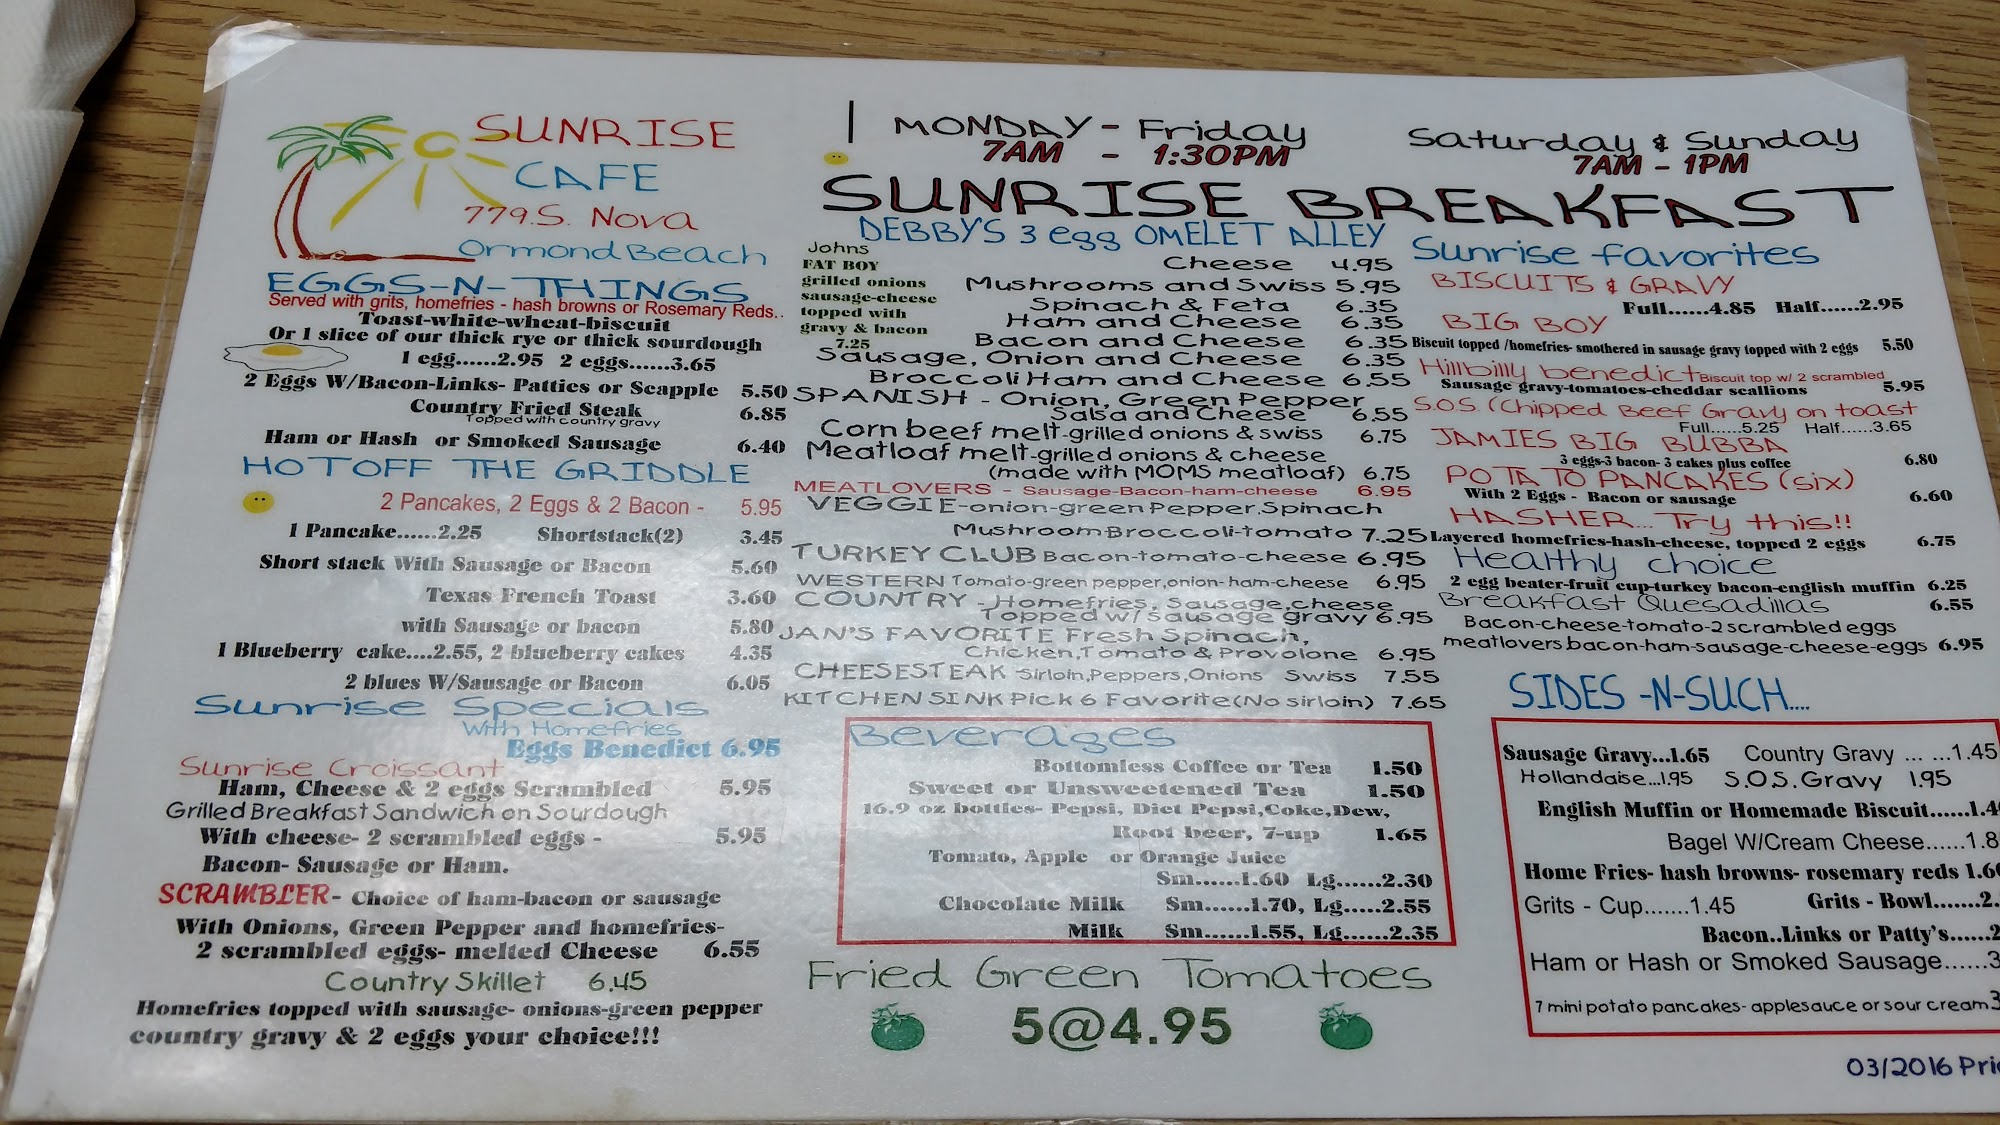 SUNRISE
CAFE
779.S. Nova
Ormond Beach
EGGS-N-THINGS
Served with grits, homefries - hash browns or Rosemary Reds..
Toast-white-wheat-biscuit
Or 1 slice of our thick rye or thick sourdough
1 egg......2.95 2 eggs......3.65
2 Eggs W/Bacon-Links- Patties or Scapple 5.50
Country Fried Steak 6.85
Topped with country gravy
Ham or Hash or Smoked Sausage 6.40
HOT OFF THE GRIDDLE
2 Pancakes, 2 Eggs & 2 Bacon - 5.95
1 Pancake......2.25 Shortstack(2) 3.45
Short stack With Sausage or Bacon 5.60
Texas French Toast 3.60
with Sausage or bacon 5.80
1 Blueberry cake....2.55, 2 blueberry cakes 4.35
2 blues W/Sausage or Bacon 6.05
Sunrise Specials
With Homefries
Eggs Benedict 6.95
Sunrise Croissant
Ham, Cheese & 2 eggs Scrambled 5.95
Grilled Breakfast Sandwich on Sourdough
With cheese- 2 scrambled eggs - 5.95
Bacon- Sausage or Ham.
SCRAMBLER- Choice of ham-bacon or sausage
With Onions, Green Pepper and homefries-
2 scrambled eggs- melted Cheese 6.55
Country Skillet 6.45
Homefries topped with sausage- onions-green pepper
country gravy & 2 eggs your choice!!!
MONDAY - Friday
7AM - 1:30PM
Saturday & Sunday
7AM - 1PM
SUNRISE BREAKFAST
DEBBY'S 3 egg OMELET ALLEY
Johns
FAT BOY
grilled onions
sausage-cheese
topped with
gravy & bacon
7.25
Cheese 4.95
Mushrooms and Swiss 5.95
Spinach & Feta 6.35
Ham and Cheese 6.35
Bacon and Cheese 6.35
Sausage, Onion and Cheese 6.35
Broccoli Ham and Cheese 6.55
SPANISH - Onion, Green Pepper
Salsa and Cheese 6.55
Corn beef melt-grilled onions & swiss 6.75
Meatloaf melt-grilled onions & cheese
(made with MOMS meatloaf) 6.75
MEATLOVERS - Sausage-Bacon-ham-cheese 6.95
VEGGIE-onion-green Pepper,Spinach
Mushroom Broccoli-tomato 7.25
TURKEY CLUB Bacon-tomato-cheese 6.95
WESTERN Tomato-green pepper,onion-ham-cheese 6.95
COUNTRY - Homefries, Sausage,cheese
Topped w/ sausage gravy 6.95
JAN'S FAVORITE Fresh Spinach,
Chicken,Tomato & Provolone 6.95
CHEESESTEAK Sirloin,Peppers,Onions Swiss 7.55
KITCHEN SINK Pick 6 Favorite(No sirloin) 7.65
Beverages
Bottomless Coffee or Tea 1.50
Sweet or Unsweetened Tea 1.50
16.9 oz bottles- Pepsi, Diet Pepsi,Coke,Dew,
Root beer, 7-up 1.65
Tomato, Apple or Orange Juice
Sm......1.60 Lg......2.30
Chocolate Milk Sm......1.70, Lg.....2.55
Milk Sm......1.55, Lg......2.35
Fried Green Tomatoes
5@4.95
Sunrise favorites
BISCUITS & GRAVY
Full......4.85 Half......2.95
BIG BOY
Biscuit topped /homefries- smothered in sausage gravy topped with 2 eggs 5.50
Hillbilly benedict Biscuit top w/ 2 scrambled
Sausage gravy-tomatoes-cheddar scallions 5.95
S.O.S. (Chipped Beef Gravy on toast
Full......5.25 Half......3.65
JAMIES BIG BUBBA
3 eggs-3 bacon- 3 cakes plus coffee 6.80
POTATO PANCAKES (six)
With 2 Eggs - Bacon or sausage 6.60
HASHER... Try this!!
Layered homefries-hash-cheese, topped 2 eggs 6.75
Healthy choice
2 egg beater-fruit cup-turkey bacon-english muffin 6.25
Breakfast Quesadillas 6.55
Bacon-cheese-tomato-2 scrambled eggs
meatlovers,bacon-ham-sausage-cheese-eggs 6.95
SIDES -N-SUCH....
Sausage Gravy...1.65 Country Gravy ... ...1.45
Hollandaise...1.95 S.O.S. Gravy 1.95
English Muffin or Homemade Biscuit......1.4
Bagel W/Cream Cheese......1.8
Home Fries- hash browns- rosemary reds 1.6
Grits - Cup.......1.45 Grits - Bowl.......2.
Bacon..Links or Patty's......2
Ham or Hash or Smoked Sausage......3
7 mini potato pancakes- applesauce or sour cream 3
03/2016